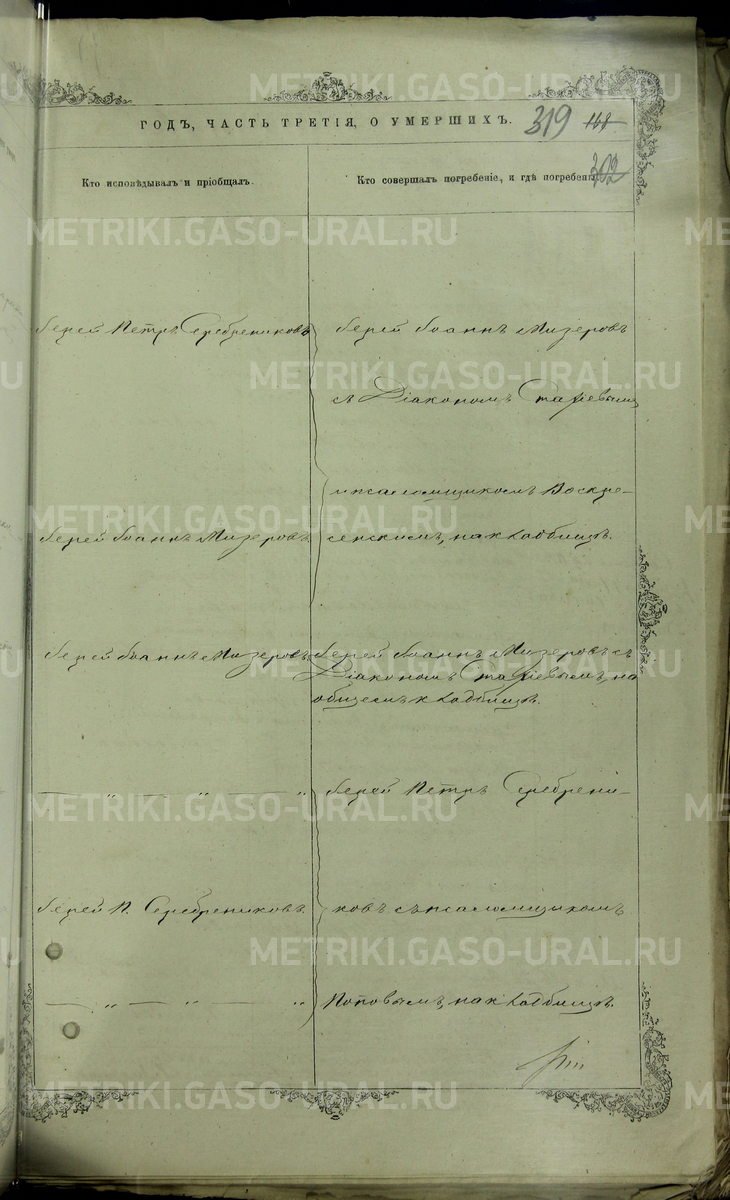 METRIKI.GASO-URAL.RU
ГОДЪ, ЧАСТЬ ТРЕТІЯ, О УМЕРШИХЪ.
319 168
302
Кто исповѣдывалъ и пріобщалъ.
Кто совершалъ погребеніе, и гдѣ погребены.
Іерей Петръ Серебрениковъ
Іерей Іоаннъ Мизеровъ
съ Діакономъ Стафіевымъ
и псаломщикомъ Воскре-
Іерей Іоаннъ Мизеровъ
сенскимъ, на кладбищѣ.
Іерей Іоаннъ Мизеровъ
Іерей Іоаннъ Мизеровъ съ
Діакономъ Стафіевымъ, на
общемъ кладбищѣ.
— „ — „ — „
Іерей Петръ Серебрени-
Іерей П. Серебрениковъ.
ковъ съ псаломщикомъ
— „ — „ — „
Поповымъ, на кладбищѣ.